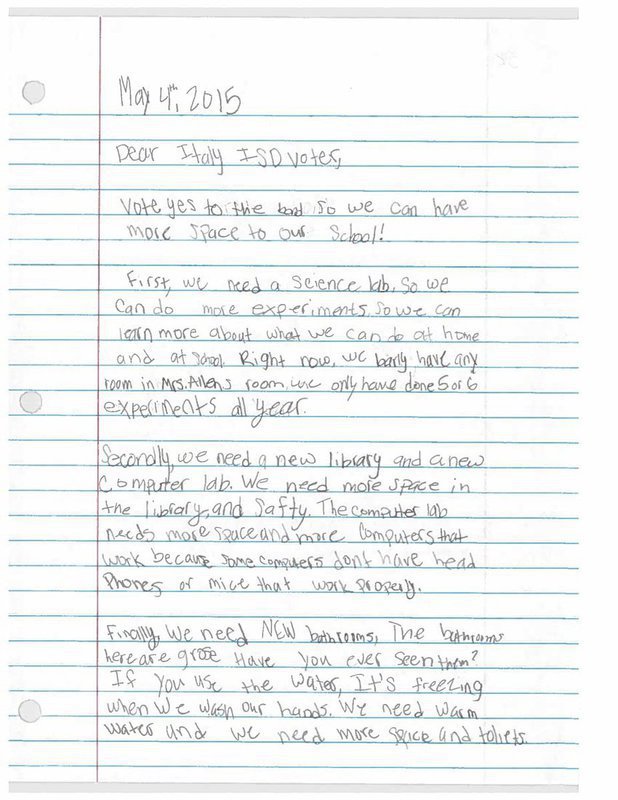 May 4th, 2015
Dear Italy ISD voters,
Vote yes to the bond so we can have
more space to our School!
First, we need a Science lab. So we
can do more experiments. So we can
learn more about what we can do at home
and at school. Right now, we barly have any
room in Mrs. Allens room. we only have done 5 or 6
experiments all year.
Secondly, we need a new library and a new
Computer lab. We need more space in
the library, and Safty. The computer lab
needs more space and more Computers that
work because some computers dont have head
Phones or mice that work Properly.
Finally, We need NEW bathrooms. The bathrooms
here are grose Have you ever seen them?
If you use the water, It's freezing
when We wash our hands. We need warm
water and we need more space and toliets.